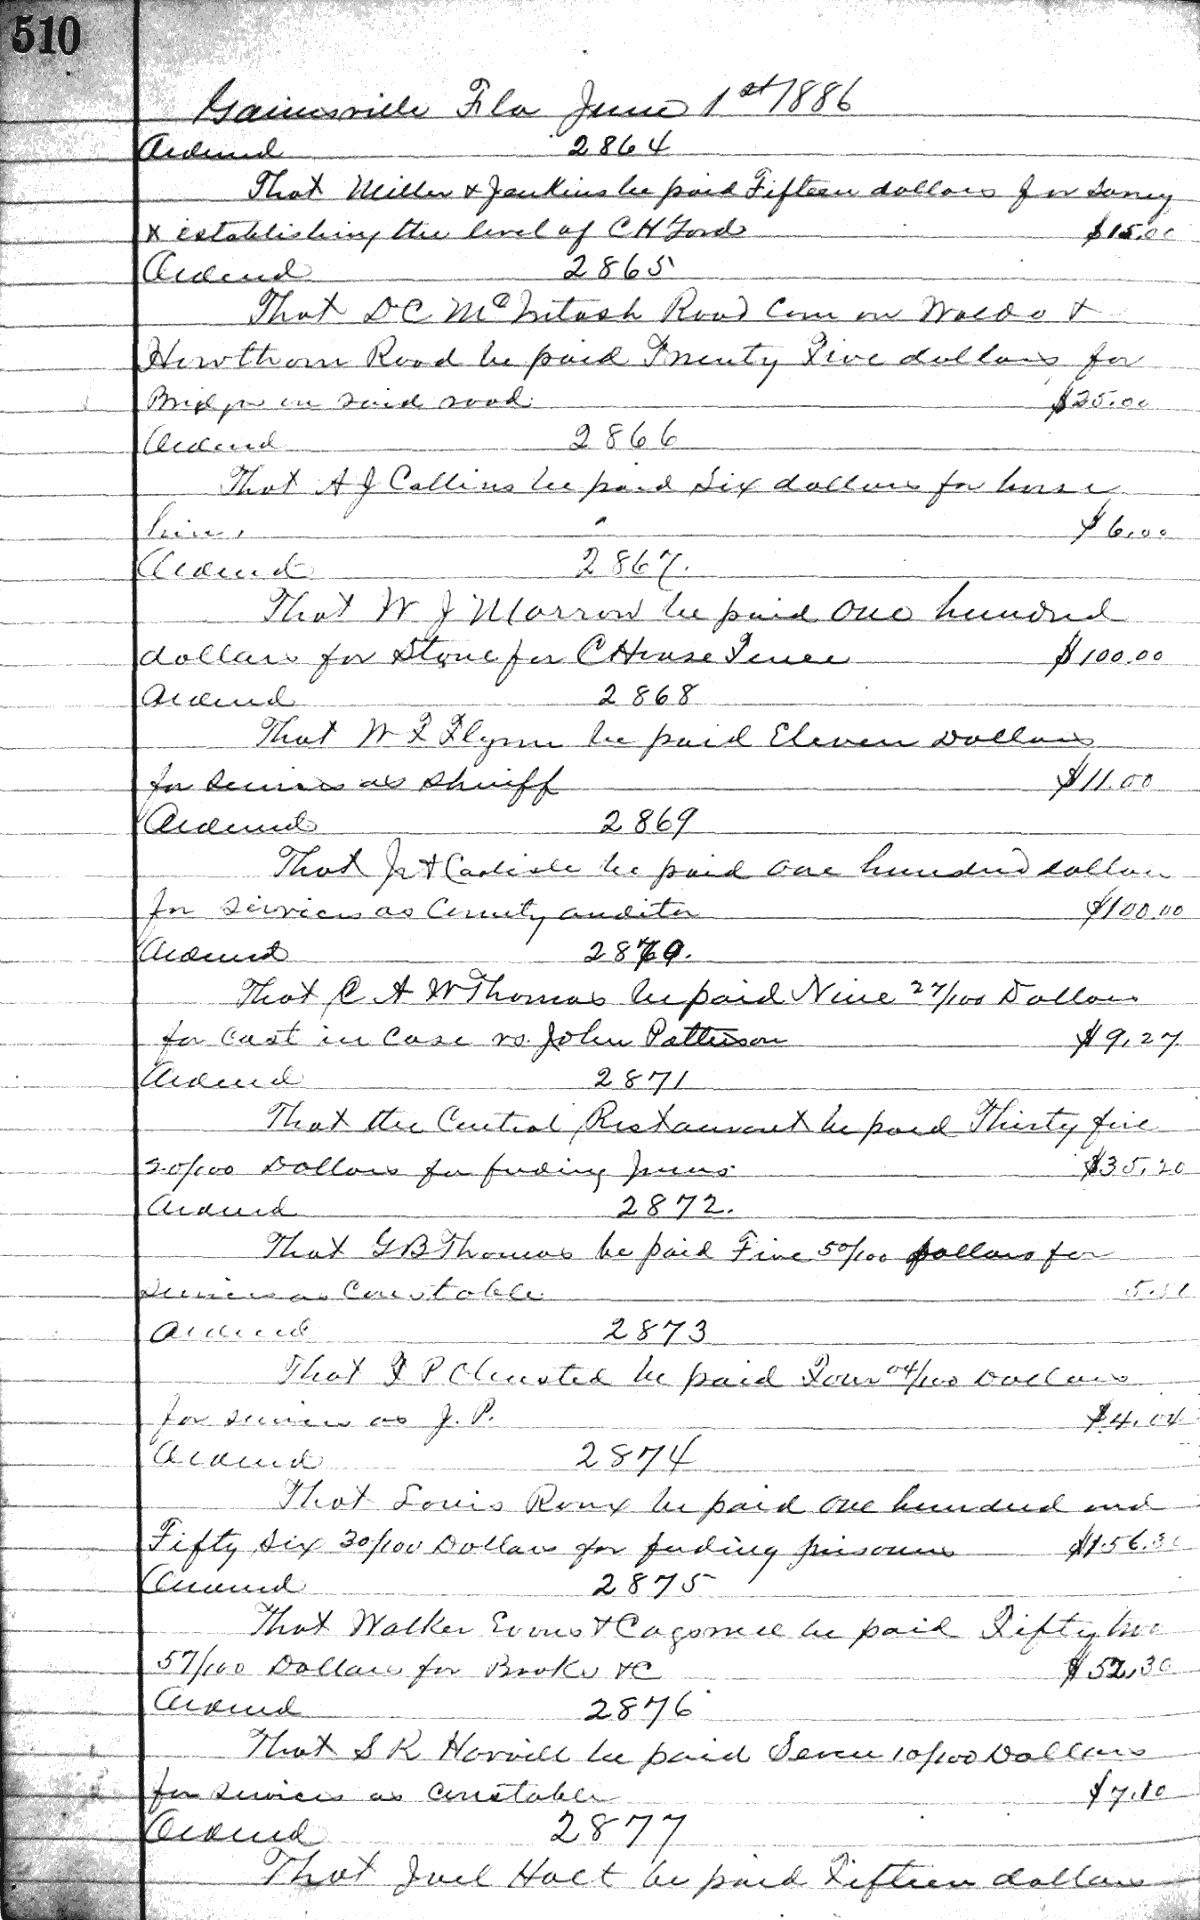 510
Gainesville Fla June 1st 1886
Ordered 2864
That Miller & Jenkins be paid Fifteen dollars for
& establishing the level of C H Ford $15.00
Ordered 2865
That D C McIntosh Road Com on Waldo &
Hawthorn Road be paid Twenty Five dollars for
Bridge on said road $25.00
Ordered 2866
That A J Collins be paid Six dollars for horse
hire. $6.00
Ordered 2867.
That W J Morrow be paid One hundred
dollars for Stone for C House Fence $100.00
Ordered 2868
That W F Flynn be paid Eleven Dollars
for services as Sheriff $11.00
Ordered 2869
That & Carlisle be paid One hundred dollars
for services as County auditor $100.00
Ordered 2870.
That C A W Thomas be paid Nine 27/100 Dollars
for Cost in Case vs. John Patterson $9.27
Ordered 2871
That the Central Restaurant be paid Thirty five
20/100 Dollars for feeding jurors $35.20
Ordered 2872.
That G B Thomas be paid Five 50/100 Dollars for
services as Constable 5.50
Ordered 2873
That F P Olmsted be paid Four 04/100 Dollars
for services as J. P. $4.04
Ordered 2874
That Louis Roux be paid One hundred and
Fifty Six 30/100 Dollars for feeding prisoners $156.30
Ordered 2875
That Walker Evans & Cogswell be paid Fifty two
57/100 Dollars for Books &C $52.30
Ordered 2876
That S R Harvill be paid Seven 10/100 Dollars
for services as constable $7.10
Ordered 2877
That Joel Holt be paid Fifteen dollars